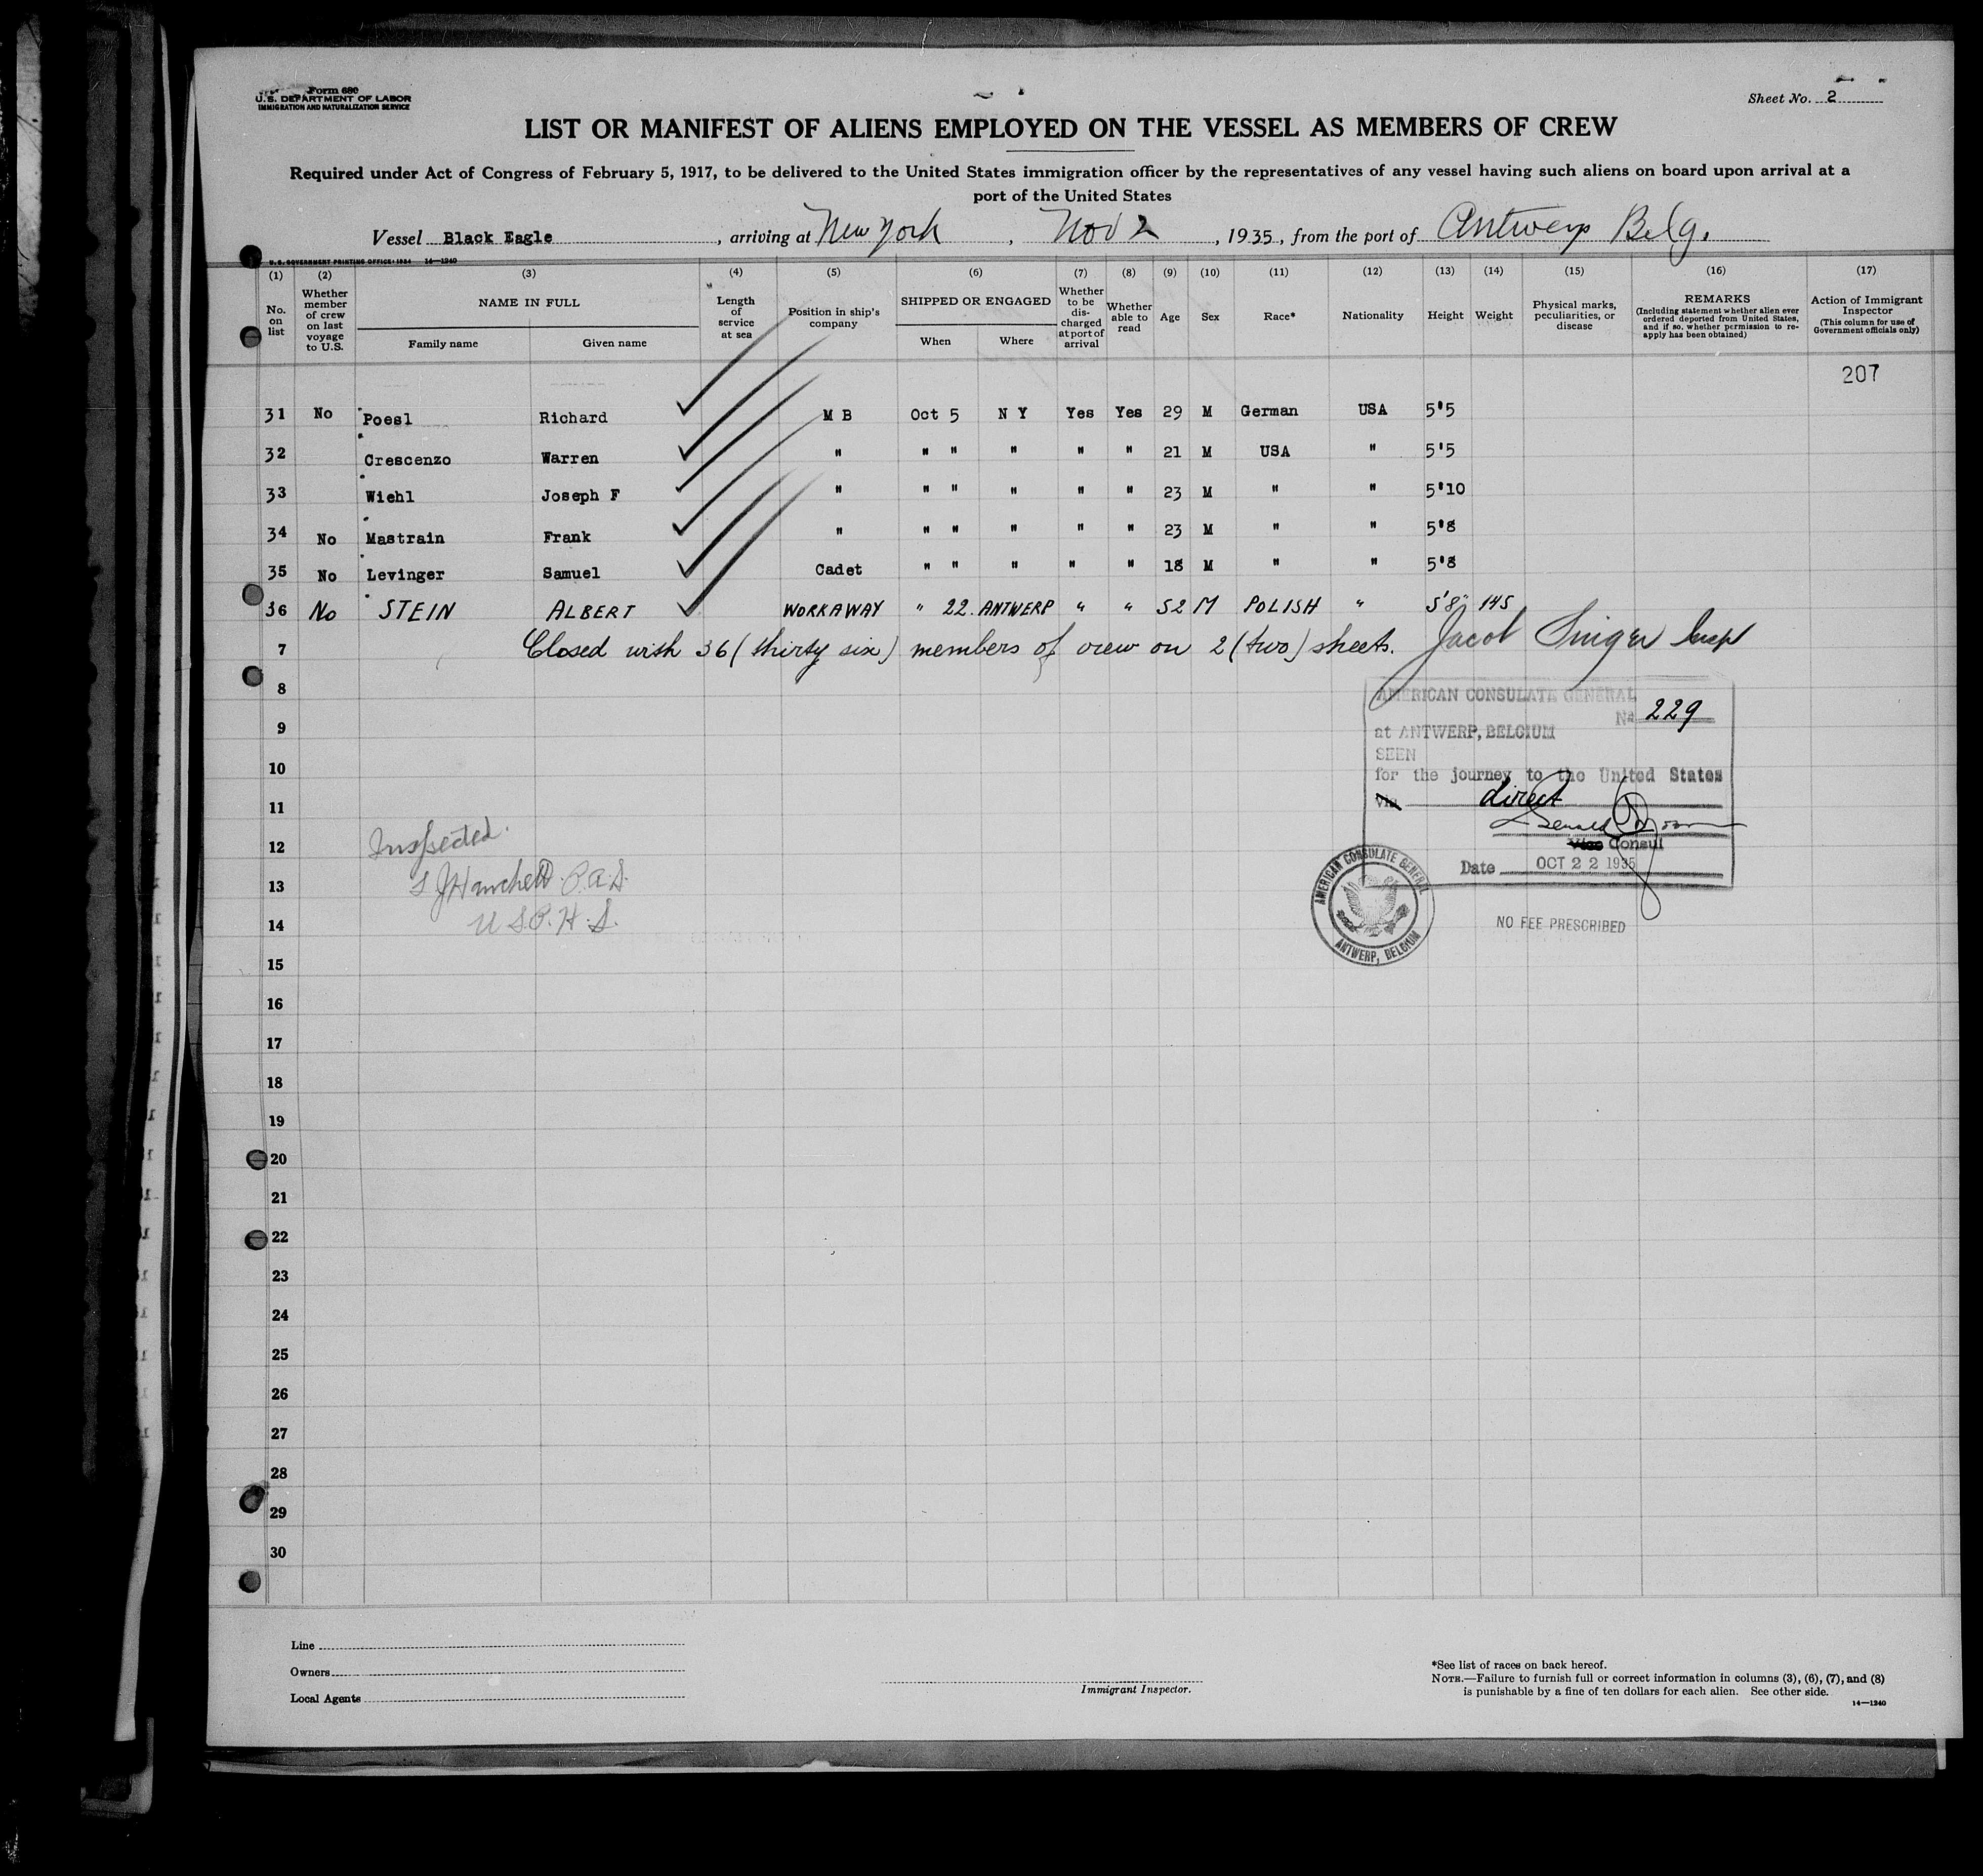 Form 680
U. S. DEPARTMENT OF LABOR
IMMIGRATION AND NATURALIZATION SERVICE
Sheet No. 2
LIST OR MANIFEST OF ALIENS EMPLOYED ON THE VESSEL AS MEMBERS OF CREW
Required under Act of Congress of February 5, 1917, to be delivered to the United States immigration officer by the representatives of any vessel having such aliens on board upon arrival at a
port of the United States
Vessel Black Eagle, arriving at New York, Nov 2, 1935, from the port of Antwerp Belg.
U. S. GOVERNMENT PRINTING OFFICE: 1934 14—1240
(1) (2) (3) (4) (5) (6) (7) (8) (9) (10) (11) (12) (13) (14) (15) (16) (17)
No. on list
Whether member of crew on last voyage to U.S.
NAME IN FULL
Family name
Given name
Length of service at sea
Position in ship's company
SHIPPED OR ENGAGED
When
Where
Whether to be discharged at port of arrival
Whether able to read
Age
Sex
Race*
Nationality
Height
Weight
Physical marks, peculiarities, or disease
REMARKS
(Including statement whether alien ever ordered deported from United States, and if so, whether permission to reapply has been obtained)
Action of Immigrant Inspector
(This column for use of Government officials only)
207
31 No Poesl Richard M B Oct 5 N Y Yes Yes 29 M German USA 5'5
32 Crescenzo Warren " " " " " " 21 M USA " 5'5
33 Wiehl Joseph F " " " " " " 23 M " " 5'10
34 No Mastrain Frank " " " " " " 23 M " " 5'8
35 No Levinger Samuel Cadet " " " " " 18 M " " 5'8
36 No STEIN ALBERT WORKAWAY " 22 ANTWERP " " 52 M POLISH " 5'8" 145
7 Closed with 36 (thirty six) members of crew on 2 (two) sheets. Jacob Singer Inspt
8
AMERICAN CONSULATE GENERAL
No 229
9
at ANTWERP, BELGIUM
SEEN
10
for the journey to the United States
11
via direct
12
Inspected.
Vice Consul
Date OCT 22 1935
13
P.A.S.
AMERICAN CONSULATE GENERAL
ANTWERP, BELGIUM
14
U.S.P.H.S.
NO FEE PRESCRIBED
15
16
17
18
19
20
21
22
23
24
25
26
27
28
29
30
Line
Owners
Local Agents
Immigrant Inspector.
*See list of races on back hereof.
NOTE.—Failure to furnish full or correct information in columns (3), (6), (7), and (8)
is punishable by a fine of ten dollars for each alien. See other side.
14—1240